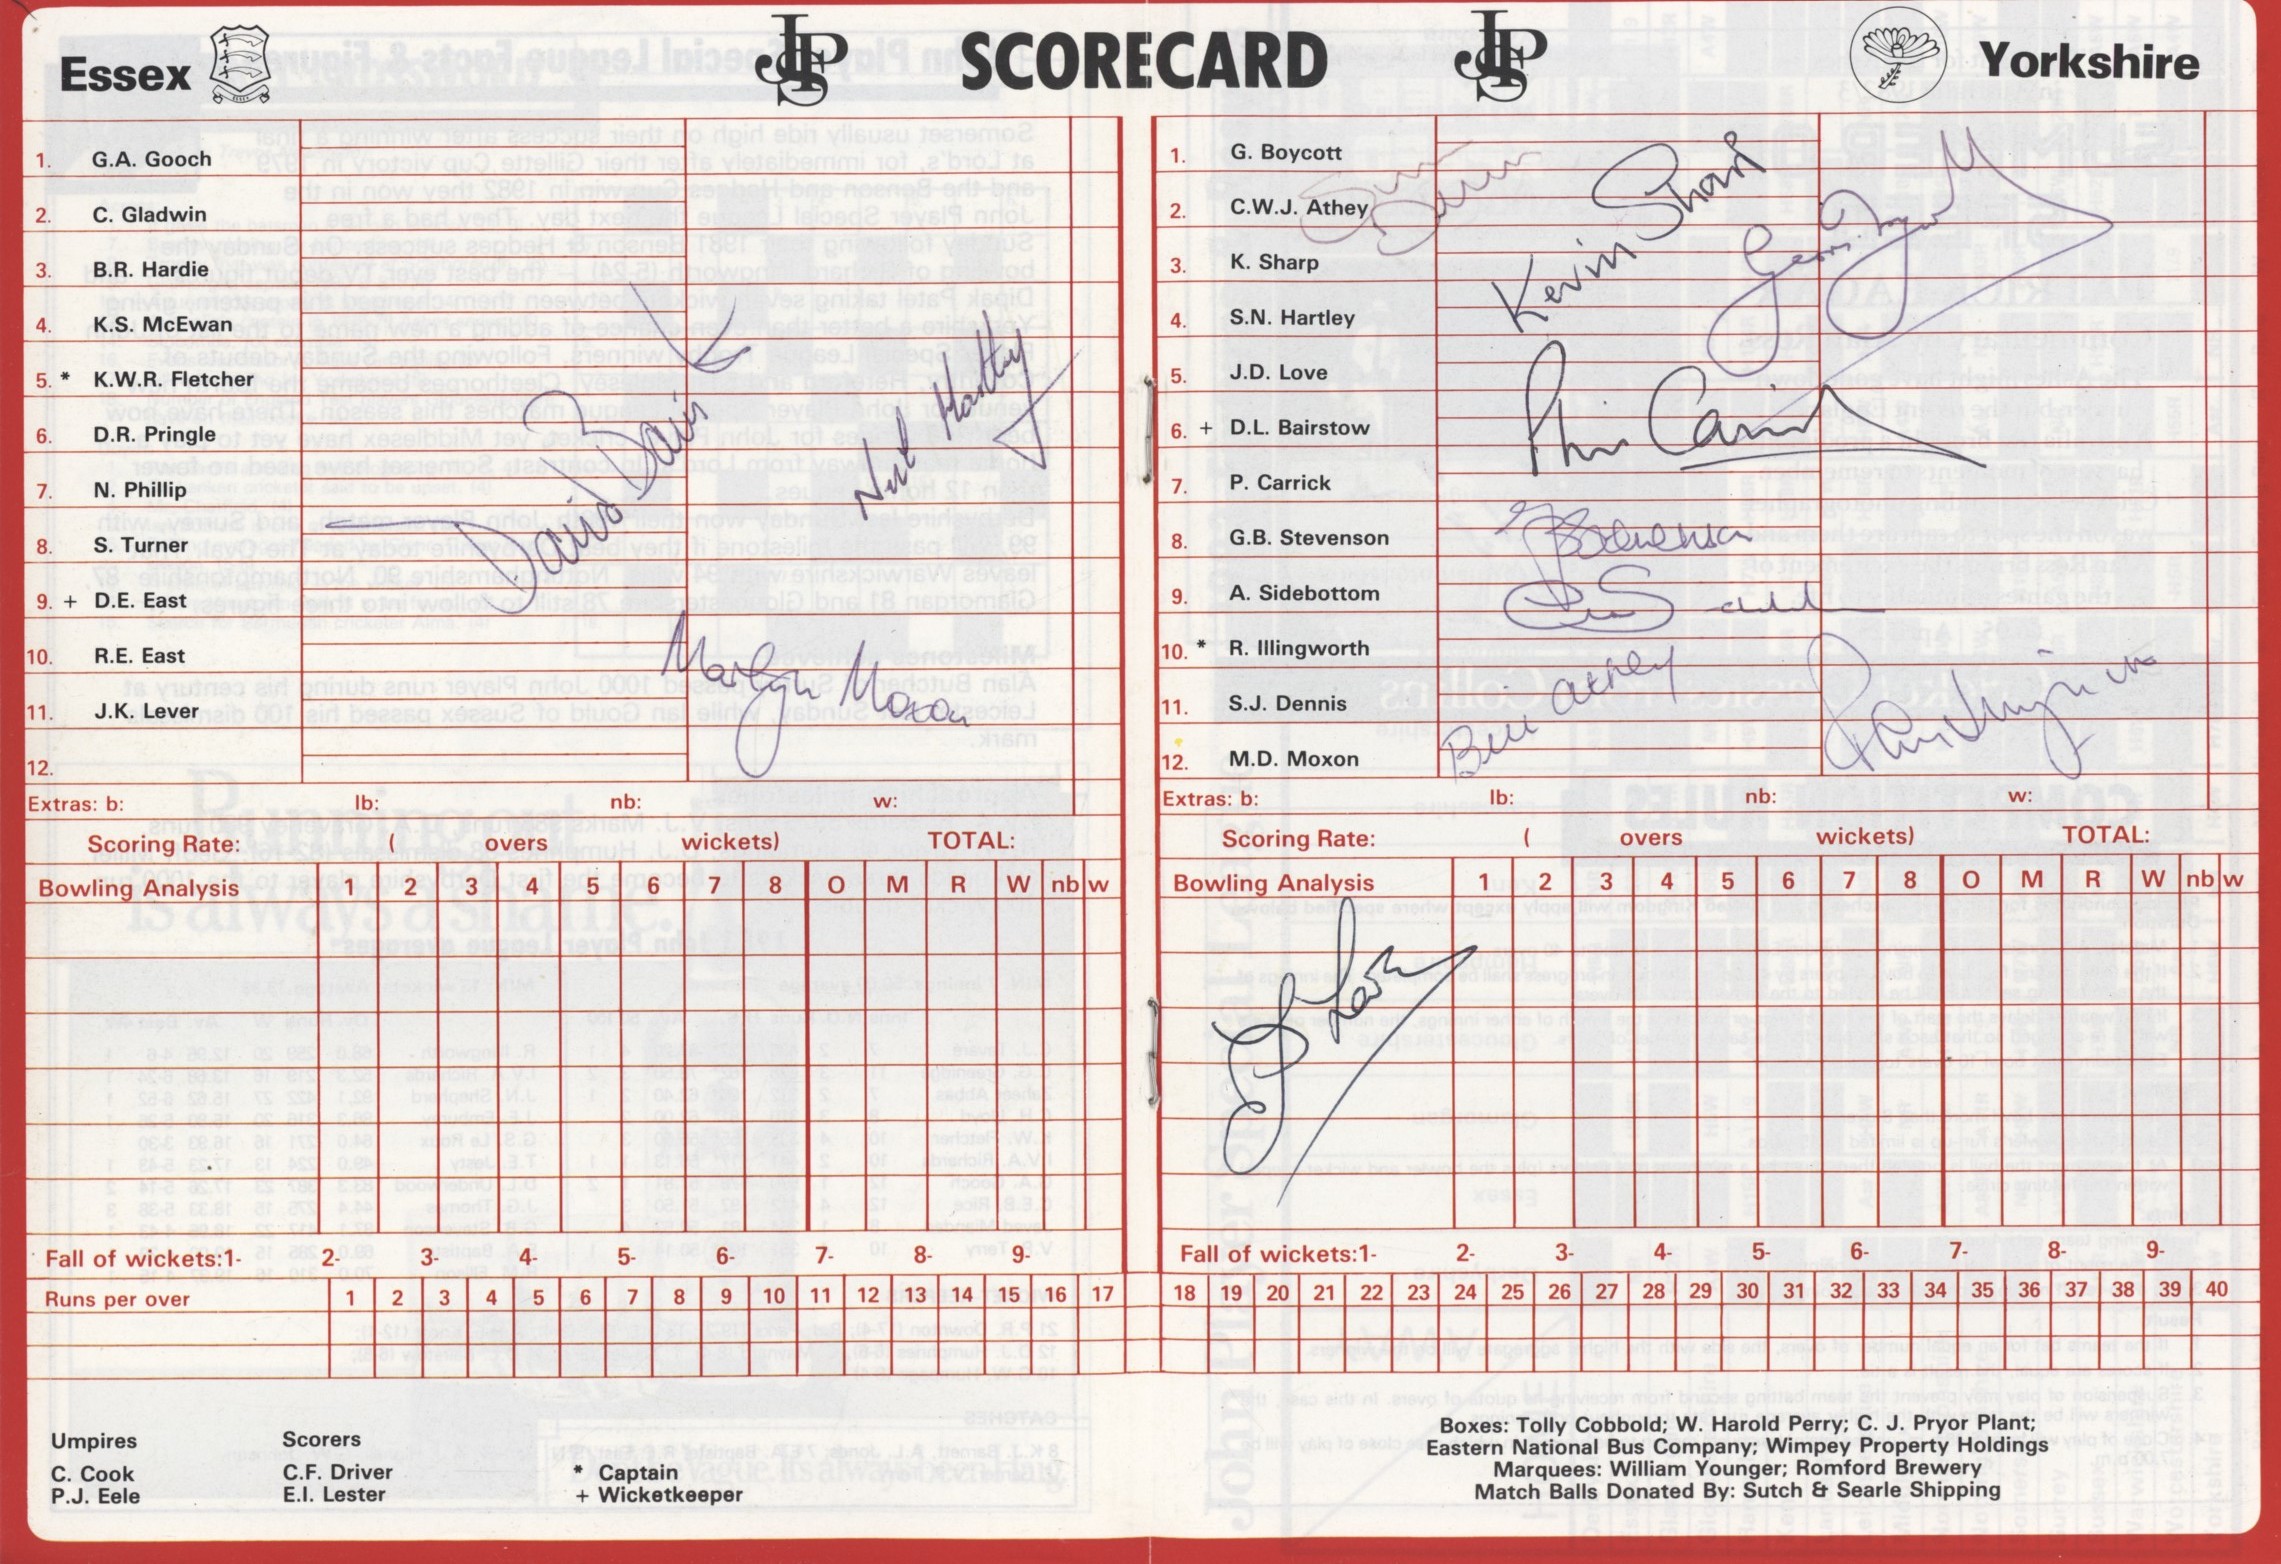 Essex
JPS
SCORECARD
JPS
Yorkshire
ESSEX
1. G.A. Gooch
2. C. Gladwin
3. B.R. Hardie
4. K.S. McEwan
5. * K.W.R. Fletcher
6. D.R. Pringle
7. N. Phillip
8. S. Turner
9. + D.E. East
10. R.E. East
11. J.K. Lever
12.
David Bairs
Neil Hartley
Martyn Moxon
Extras: b: lb: nb: w:
Scoring Rate: ( overs wickets) TOTAL:
Bowling Analysis 1 2 3 4 5 6 7 8 O M R W nb w
Fall of wickets:1- 2- 3- 4- 5- 6- 7- 8- 9-
Runs per over 1 2 3 4 5 6 7 8 9 10 11 12 13 14 15 16 17
Umpires Scorers
C. Cook C.F. Driver * Captain
P.J. Eele E.I. Lester + Wicketkeeper
1. G. Boycott
2. C.W.J. Athey
3. K. Sharp
4. S.N. Hartley
5. J.D. Love
6. + D.L. Bairstow
7. P. Carrick
8. G.B. Stevenson
9. A. Sidebottom
10. * R. Illingworth
11. S.J. Dennis
12. M.D. Moxon
Simon Dennis
Kevin Sharp
Phil Carrick
GB Stevenson
Bill Athey
Extras: b: lb: nb: w:
Scoring Rate: ( overs wickets) TOTAL:
Bowling Analysis 1 2 3 4 5 6 7 8 O M R W nb w
Fall of wickets:1- 2- 3- 4- 5- 6- 7- 8- 9-
18 19 20 21 22 23 24 25 26 27 28 29 30 31 32 33 34 35 36 37 38 39 40
Boxes: Tolly Cobbold; W. Harold Perry; C. J. Pryor Plant;
Eastern National Bus Company; Wimpey Property Holdings
Marquees: William Younger; Romford Brewery
Match Balls Donated By: Sutch & Searle Shipping